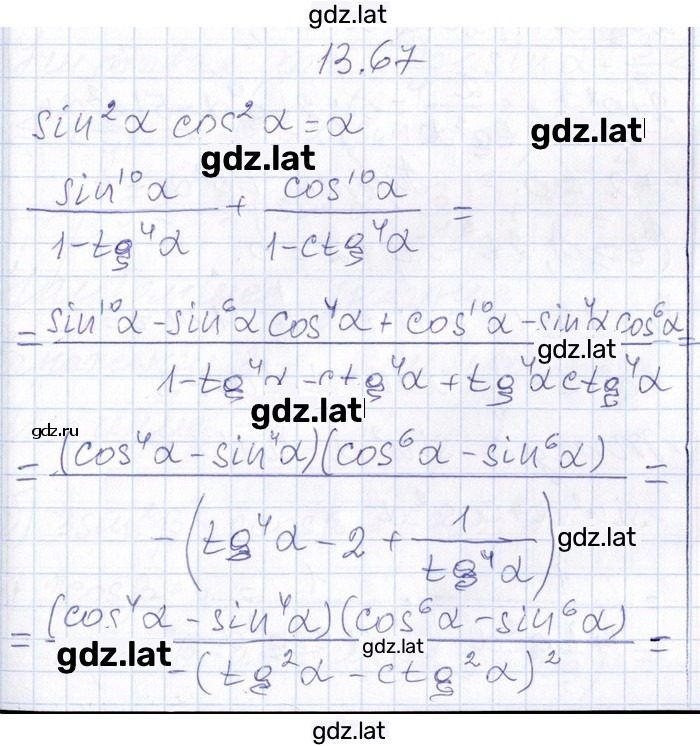 gdz.lat
13.67
sin²α cos²α = α
gdz.lat
gdz.lat
sin¹⁰α/(1-tg⁴α) + cos¹⁰α/(1-ctg⁴α) =
= (sin¹⁰α - sin⁶α cos⁴α + cos¹⁰α - sin⁴α cos⁶α)/(1-tg⁴α - ctg⁴α + tg⁴α ctg⁴α) =
gdz.lat
gdz.lat
gdz.ru
= (cos⁴α - sin⁴α)(cos⁶α - sin⁶α)/(-(tg⁴α - 2 + 1/(tg⁴α))) =
gdz.lat
= (cos⁴α - sin⁴α)(cos⁶α - sin⁶α)/(-(tg²α - ctg²α)²) =
gdz.lat
gdz.lat
gdz.lat